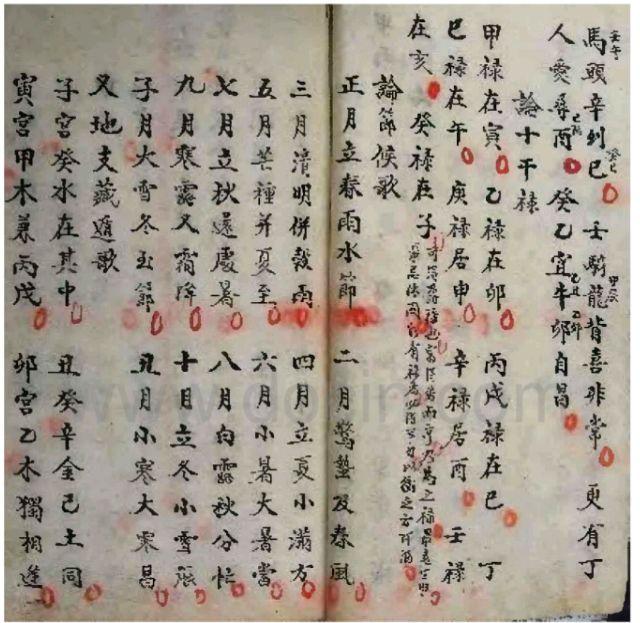 馬頭辛列巳 壬騎龍背喜非常 更有丁
人愛尋酉 癸乙宜牛卯自昌
論十干祿
甲祿在寅 乙祿在卯 丙戊祿在巳 丁
巳祿在午 庚祿居申 辛祿居酉 壬祿
在亥 癸祿在子
論節候歌
正月立春雨水節 二月驚蟄及春風
三月清明併穀雨 四月立夏小滿方
五月芒種并夏至 六月小暑大暑當
七月立秋還處暑 八月白露秋分忙
九月寒露又霜降 十月立冬小雪張
子月大雪冬至節 丑月小寒大寒昌
又地支藏遁歌
子宮癸水在其中 丑癸辛金己土同
寅宮甲木兼丙戊 卯宮乙木獨相逢